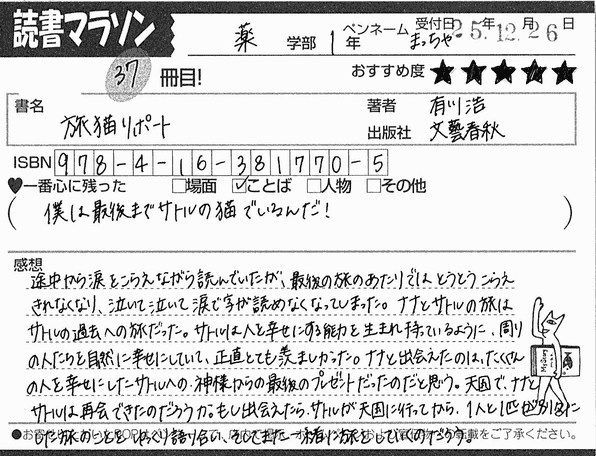 読書マラソン
薬 学部 1年 ペンネーム まっちゃ 受付日 25年12月26日
37 冊目! おすすめ度 ★★★★★
書名 旅猫リポート
著者 有川浩
出版社 文藝春秋
ISBN 978-4-16-381770-5
♥一番心に残った □場面 ☑ことば □人物 □その他
( 僕は最後までサトルの猫でいるんだ! )
感想
途中から涙をこらえながら読んでいたが、最後の旅のあたりではとうとうこらえ
きれなくなり、泣いて泣いて涙で字が読めなくなってしまった。ナナとサトルの旅は
サトルの過去への旅だった。サトルは人を幸せにする能力を生まれ持っているように、周り
の人たちを自然に幸せにしていて、正直とても羨ましかった。ナナと出会えたのは、たくさん
の人を幸せにしたサトルへの、神様からの最後のプレゼントだったのだと思う。天国で、ナナと
サトルは再会できたのだろうか。もし出会えたら、サトルが天国に行ってから、1人と1匹が別々に
した旅のことをじっくり語り合い、そしてまた一緒に旅をしていくのだろう。